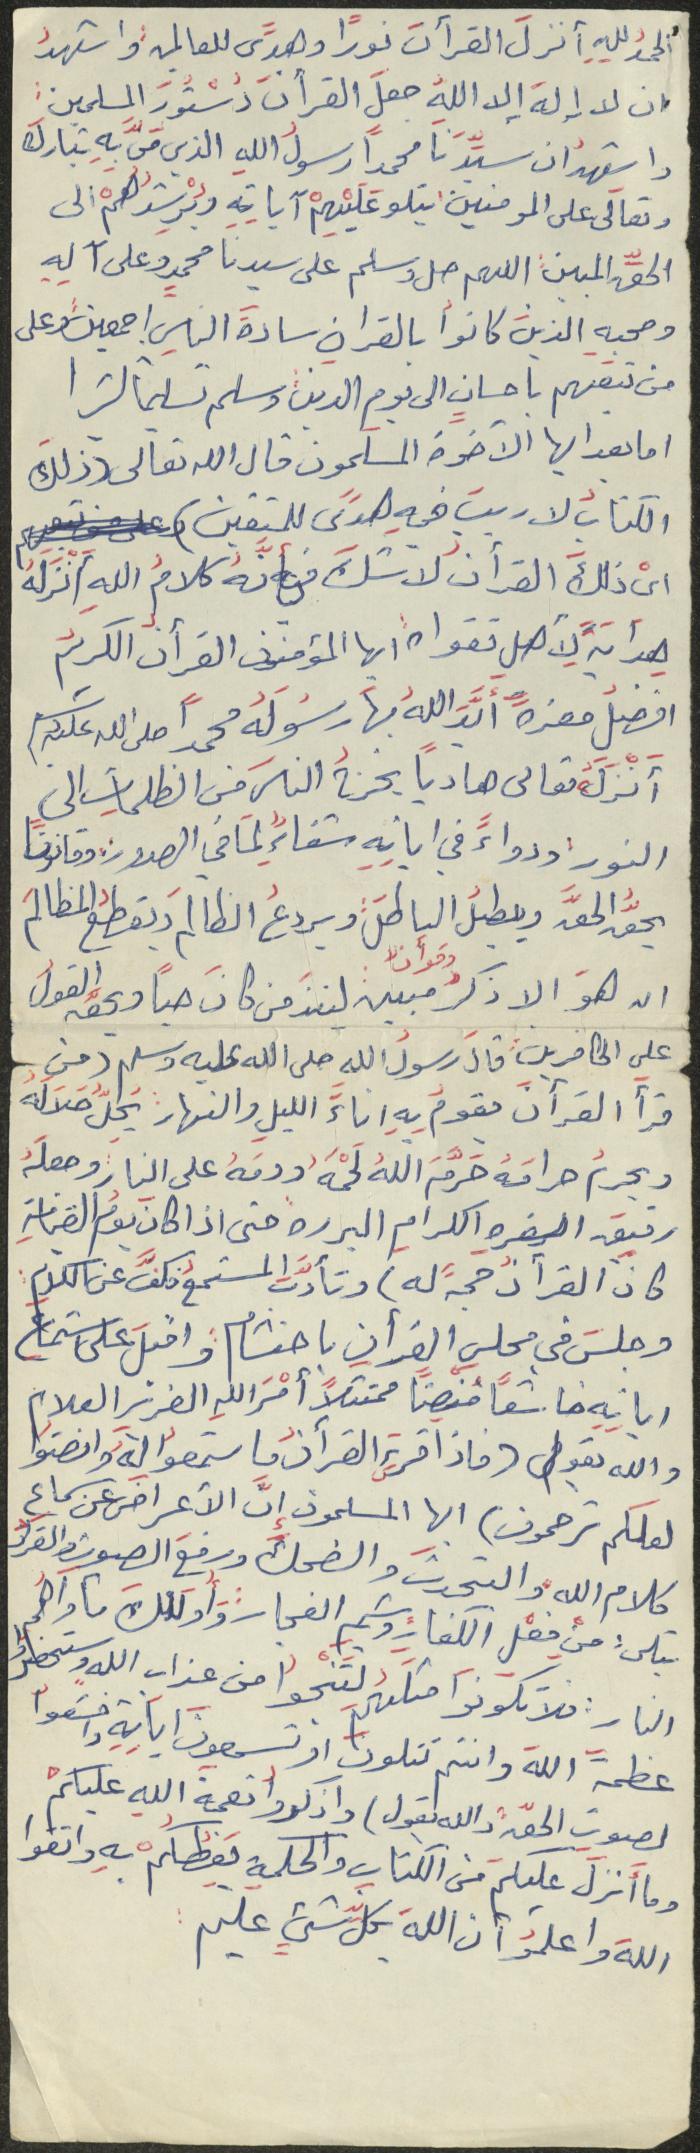 الحمدُ للهِ أنزلَ القرآنَ نورًا وهدًى للعالمين واشهدُ
ان لا إلهَ إلا اللهُ جعلَ القرآنَ دُسْتُورَ المسلمين
واشهدُ ان سيِّدَنَا محمداً رسولُ اللهِ الذي مَنَّ بِهِ تبارك
وتعالَى على المومنين يتلو عَلَيْهِمْ آياتِهِ ويُرْشِدُهُمْ الى
الحقِّ المبين اللهم صل وسلم على سيدنا محمدٍ وعلى آلِهِ
وصحبِهِ الذينَ كانوا بالقرانِ سادةَ الناسِ اجمعين وعلى
من تبعَهم باحسانٍ الى يومِ الدين وسلم تسليمًا كثيرا
اما بعد ايها الاخوة المسلمون قال الله تعالى (ذلك
الكتابُ لا ريبَ فيهِ هدًى للمتقين)
اىْ ذلكَ القرآنُ لا شكَّ فى انَّهُ كلامُ اللهِ أنْزَلَهُ
هدايةً لِأهلِ تقواه ايها المؤمنون القرآنُ الكريمُ
افضلُ معجزةٍ أيَّدَ اللهُ بها رسولَهُ محمداً صلى الله عليه وسلم
أنْزَلَهُ تعالى هادياً يخرجُ الناسَ من الظلماتِ الى
النور ودواءً في اياتِهِ شفاءٌ لِمَا في الصدور وقانونًا
يحقُّ الحقَّ ويبطلُ الباطلَ ويردعُ الظالمَ ويقطعُ المظالمَ
ان هوَ الا ذكرٌ وقرآنٌ مبين لينذرَ من كانَ حياً ويحقَّ القولُ
على الكافرين قالَ رسولُ الله صلى الله عليه وسلم (من
قرأَ القرآنَ يقومُ بِهِ اناءَ الليلِ والنهار يُحِلُّ حَلَالَهُ
ويحرمُ حرامَهُ حَرَّمَ اللهُ لَحْمَهُ ودمَهُ على النار وجعلَهُ
رفيقَ السفرهِ الكرامِ البرره حتى اذا كانَ يومُ القيامةِ
كانَ القرآنُ حجةً له) وتأدَّبَ المستمعُ فكفَّ عن الكلامِ
وجلسَ في مجلسِ القرآنِ باحتشام واقبلَ على استماعِ
اياتِهِ خاشعًا مُنْصِتًا ممتثلاً أمْرَ اللهِ العزيزِ العلام
والله يقول (فاذا قرئَ القرآنُ فاستمعوا لهُ وانصتوا
لعلكم ترحمون) ايها المسلمون إنَّ الاعراضَ عن سماعِ
كلام الله والتحدثَ والضحكَ ورفعَ الصوتِ والقرآنُ
يتلى منْ فعْلِ الكفار وشيمِ الفجار وأولئكَ مأواهُم
النار فلا تكونوا مثلَهم لتَنْجُوا من عذاب الله واستحضروا
عظمةَ اللهَ وانتم تتلونَ او تسمعونَ اياتِهِ واخشعوا
لصوتِ الحقِّ والله يقول) واذكروا نعمة اللهِ عليكمْ
وما أنزلَ عليكمْ من الكتابِ والحكمةِ يَعِظُكُمْ بِهِ واتقوا
اللهَ واعلموا أنَّ اللهَ بكلِّ شئٍ عليم